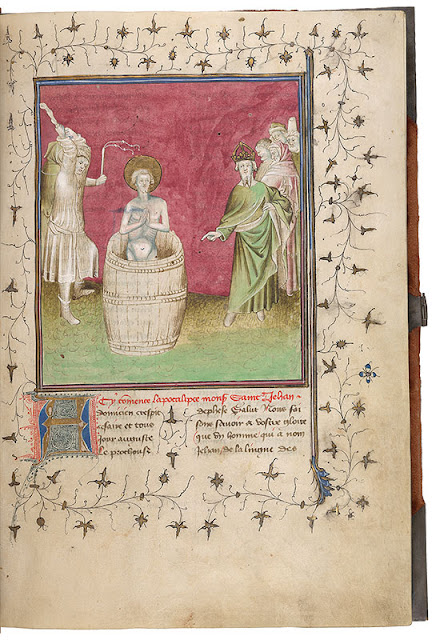 Cy comence lapocalipce mons saint Jehan
A domicien trespie
cesaire et tous
iour auguste
le proconse
dephese salut Nous fai
sons sauoir a vostre gloire
que vn homme qui a nom
Jehan, de la lingne des